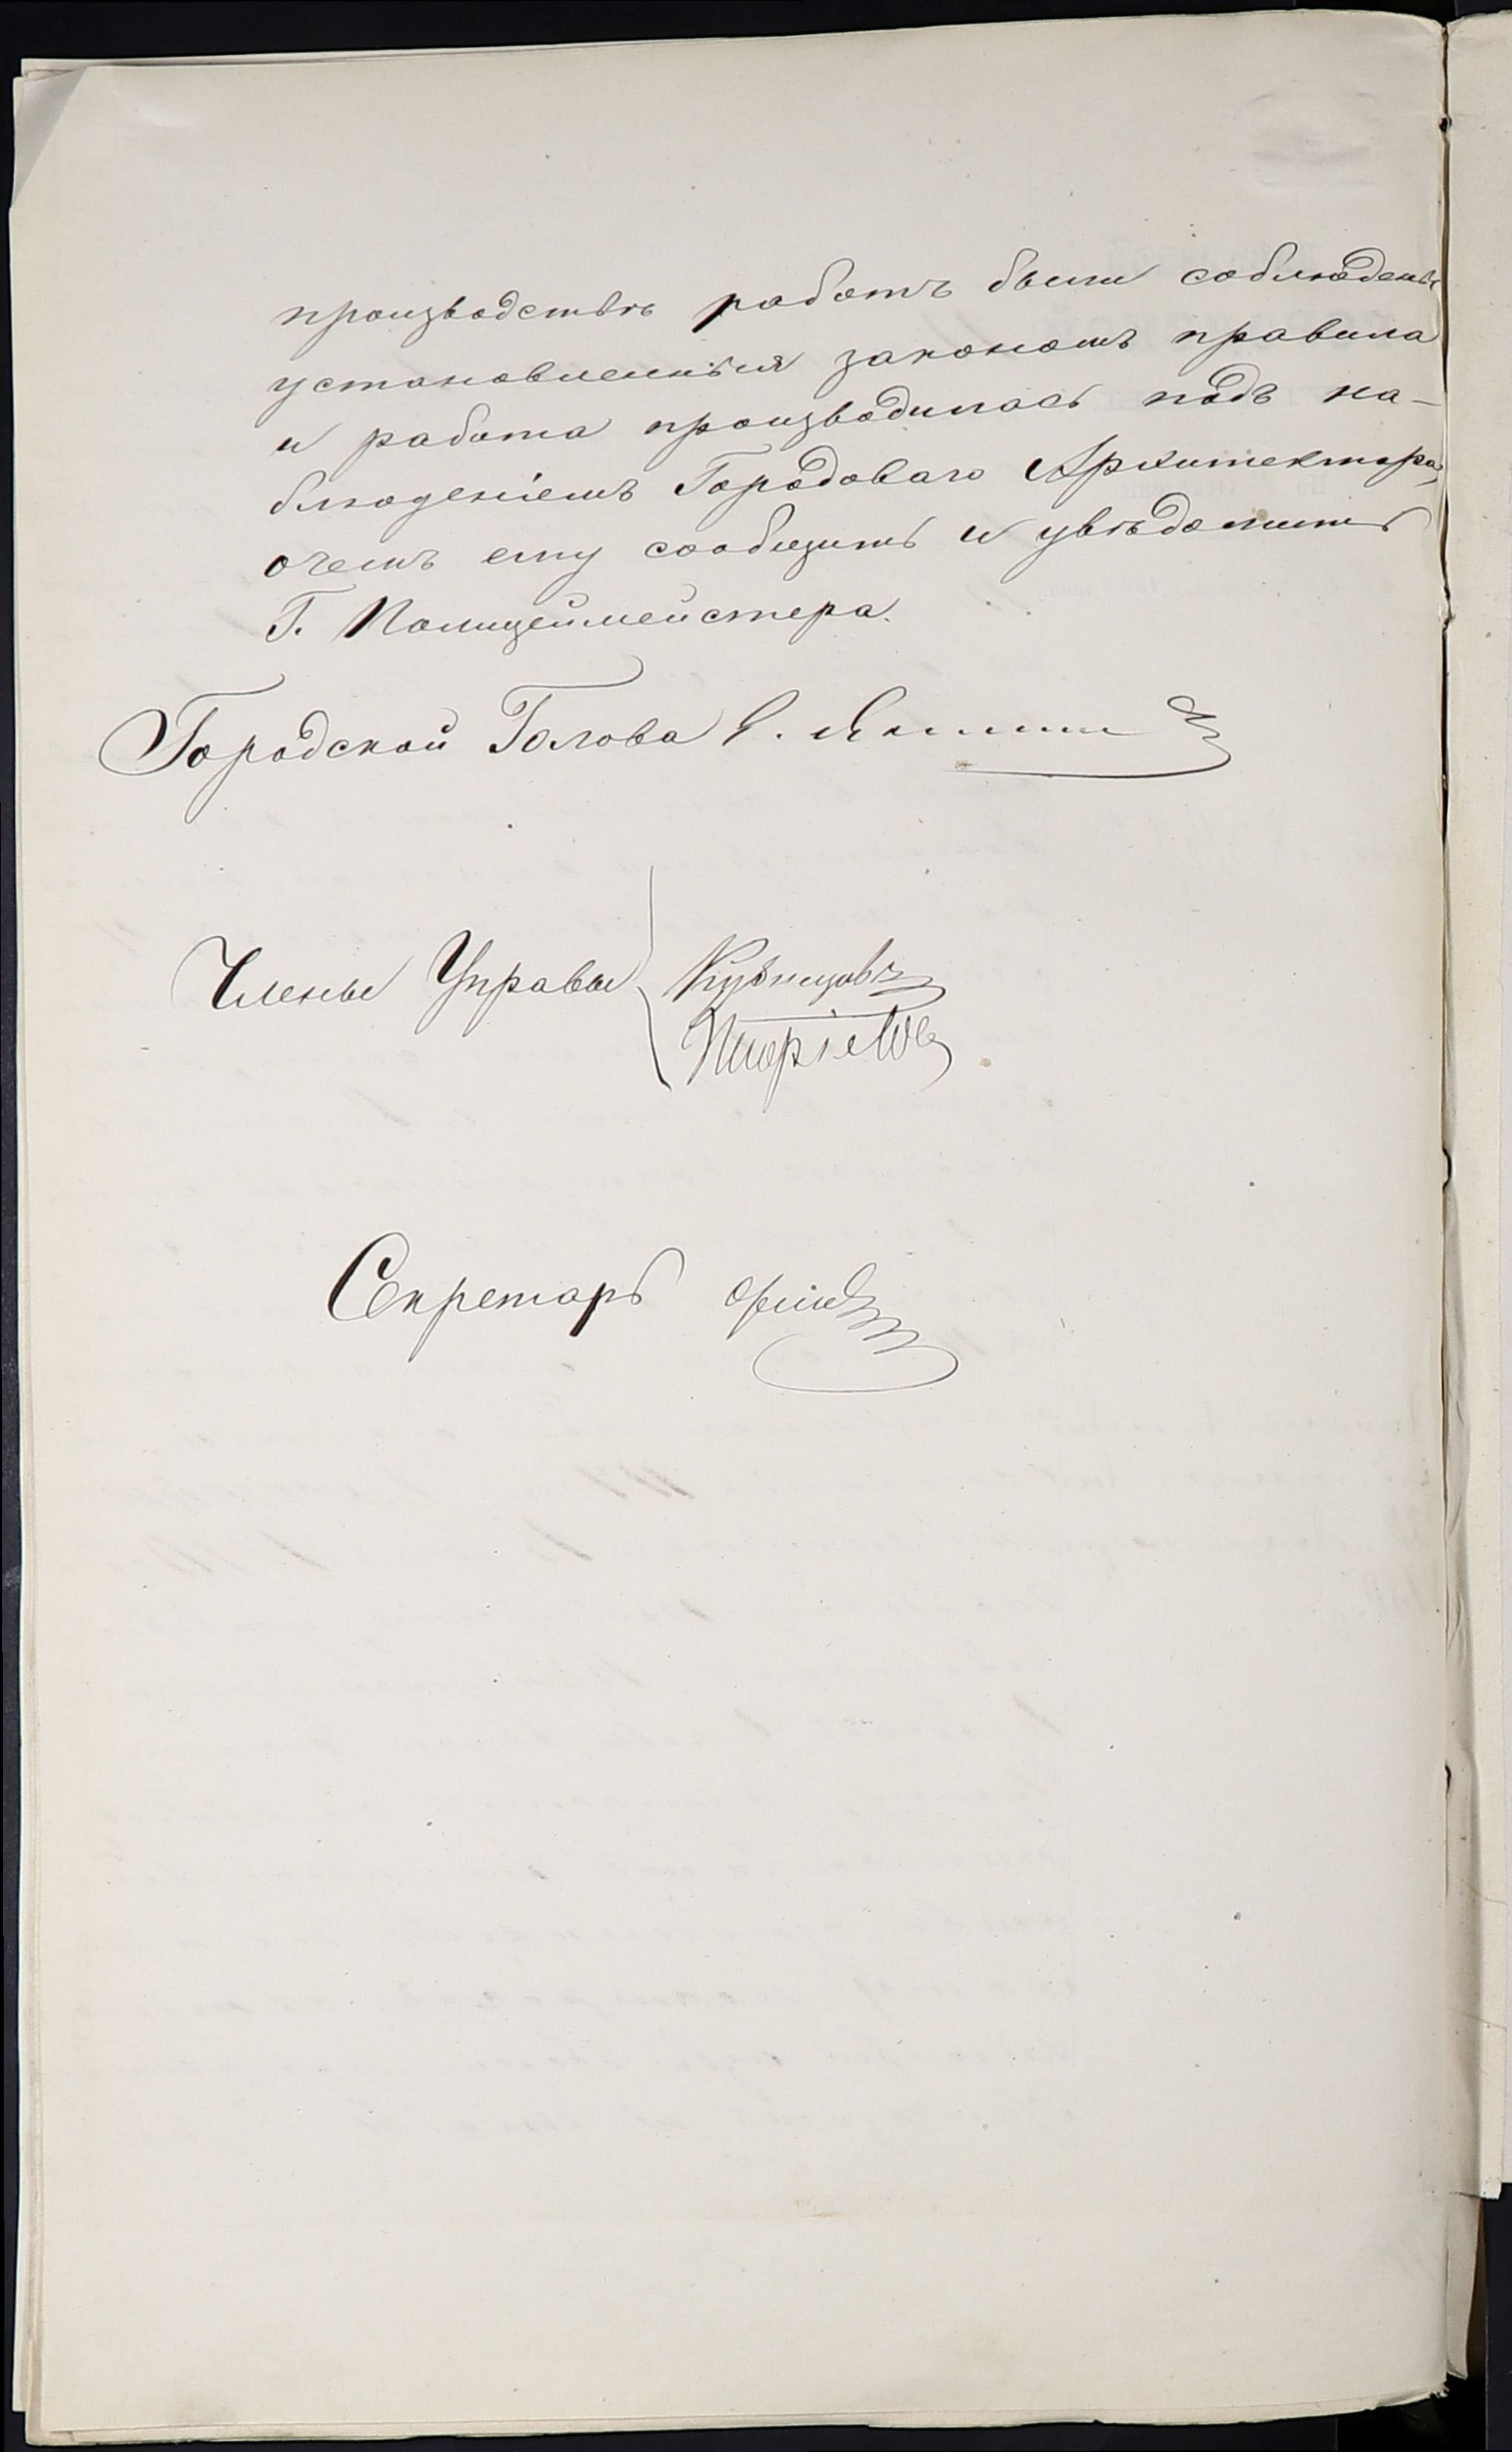 производствѣ работъ были соблюдены
установленныя закономъ правила
и работа производилась подъ на-
блюденіемъ Городоваго Архитектора,
о чемъ ему сообщить и увѣдомить
Г. Полицеймейстера.
Городской Голова
Члены Управы Кузнецовъ
Секретарь